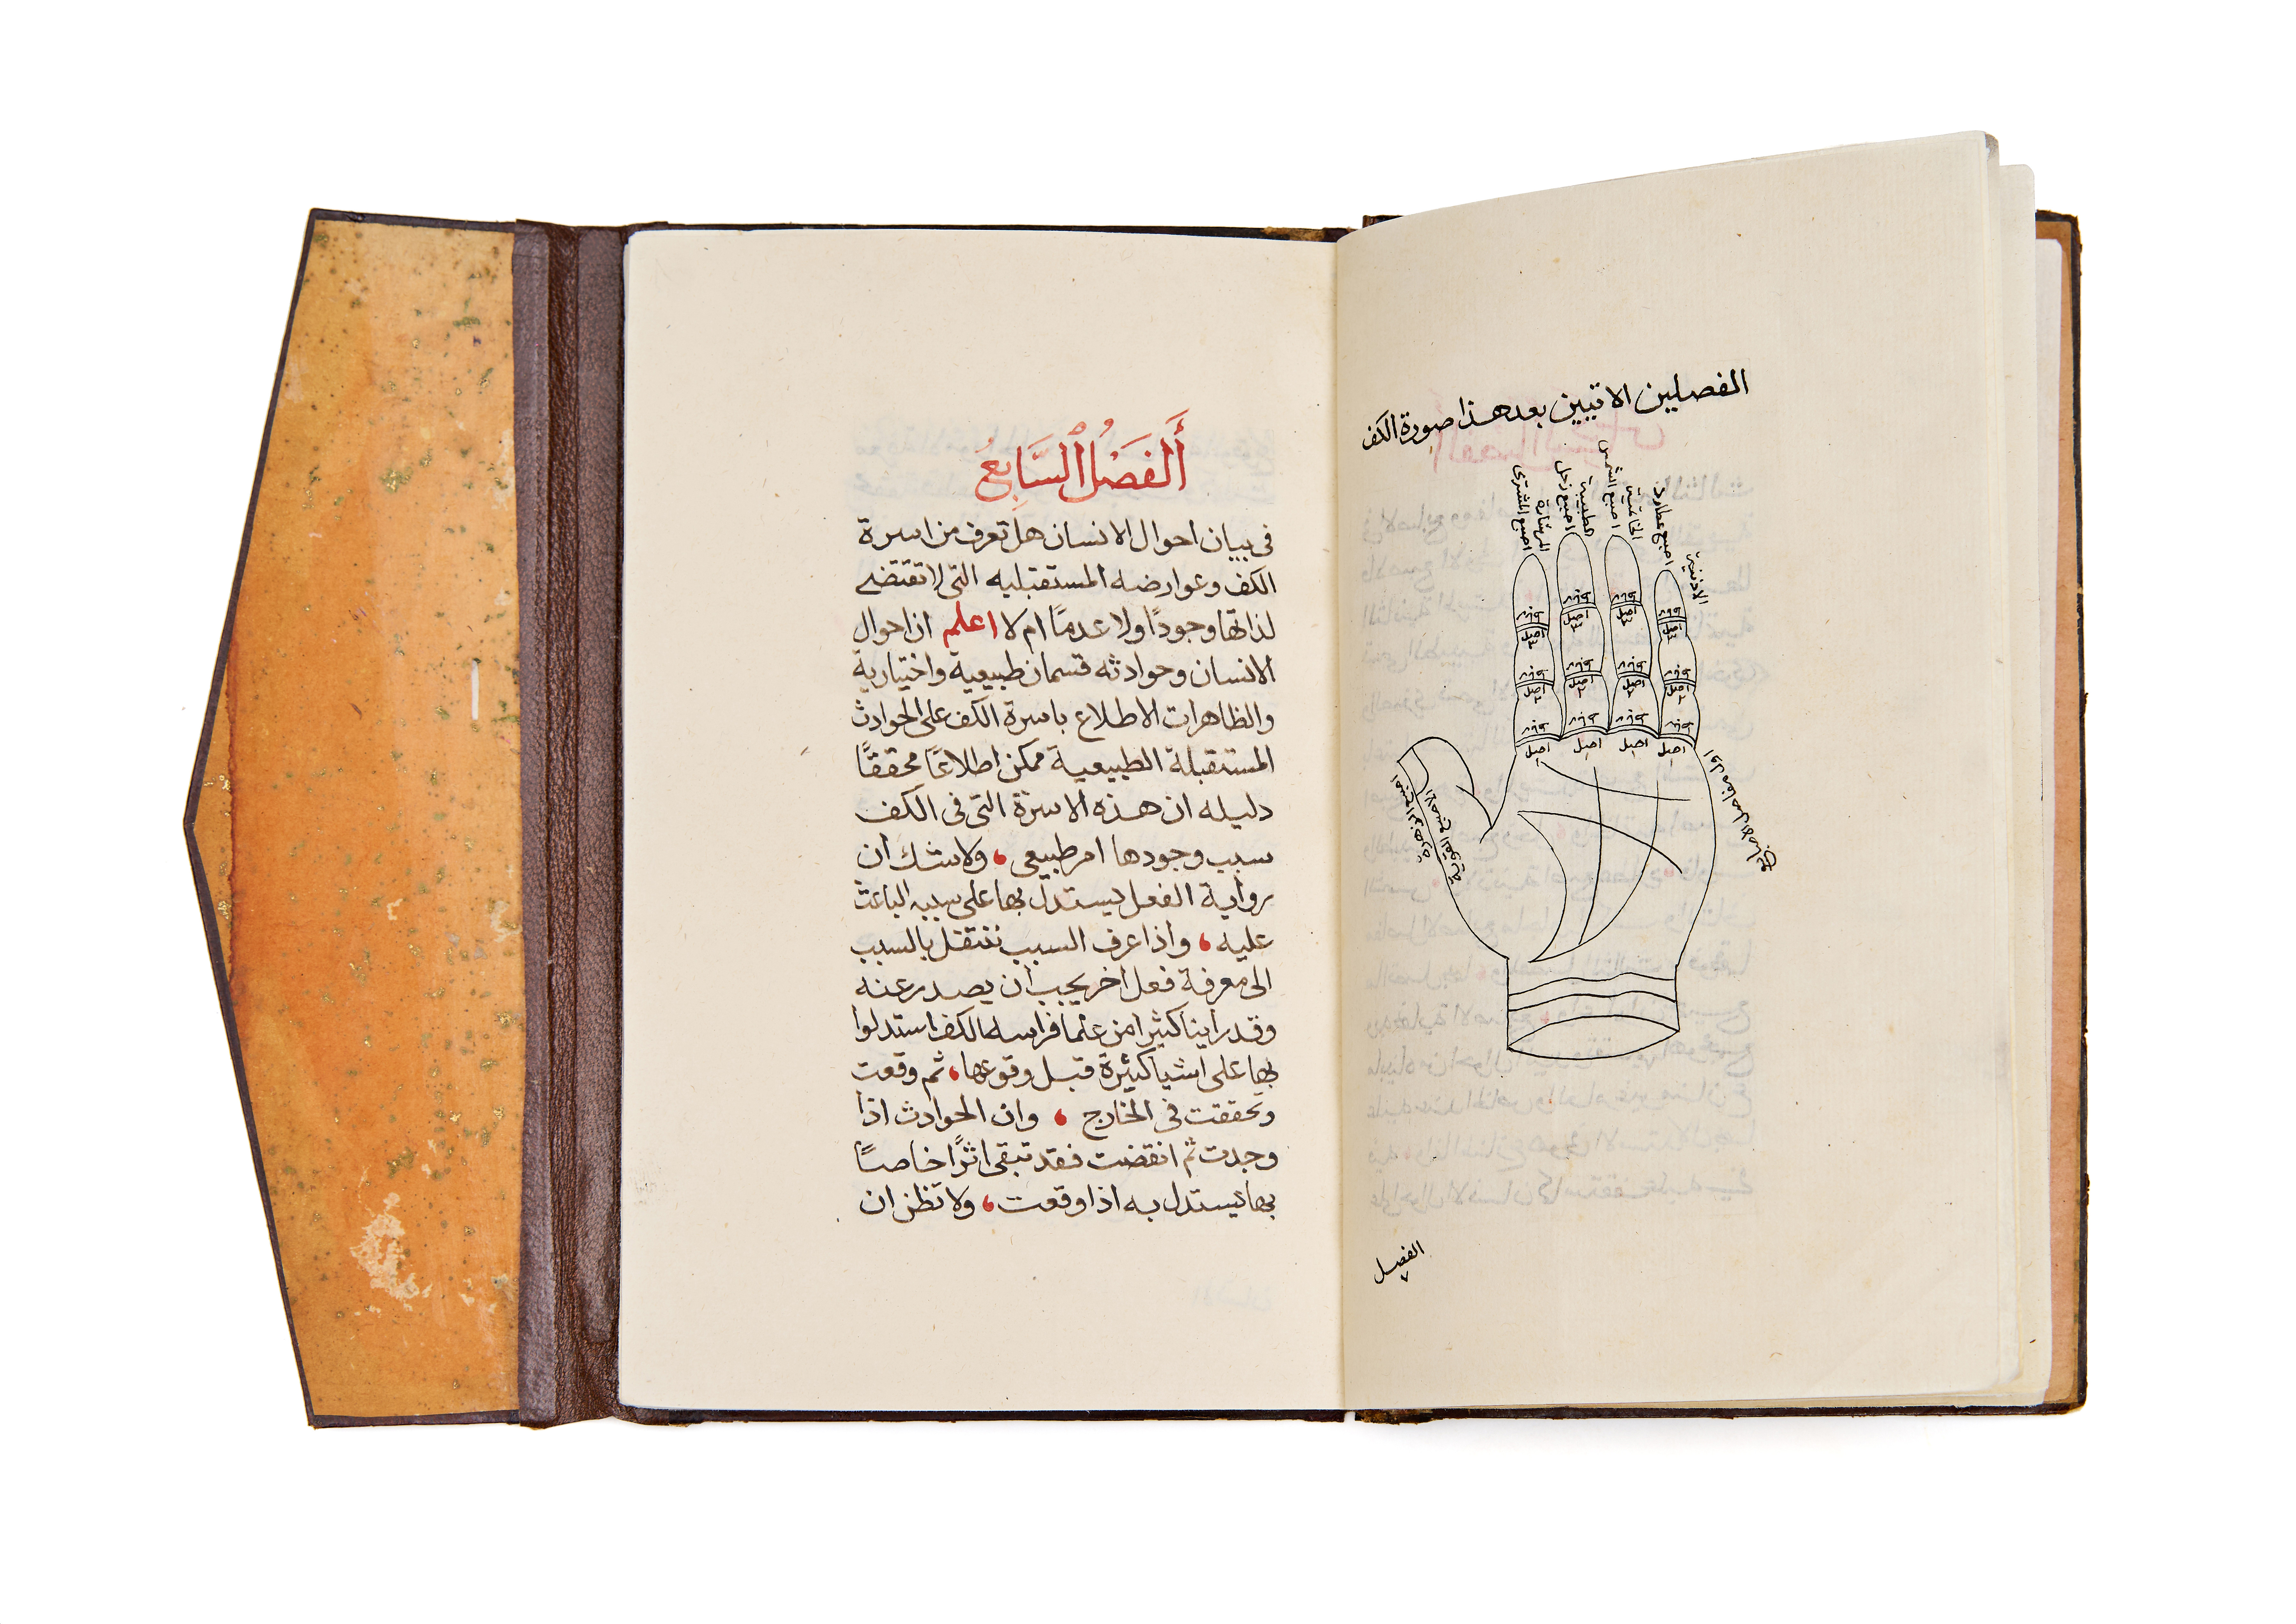 الفصلين الاتيين بعد هذا صورة الكف
اصبع المشترى
اصبع زحل
اصبع الشمس
اصبع عطارد
اول مفاصل الاصابع
اصل
اصل
اصل
اصل
الفصل
أَلفَصْلُ ٱلسَّابِعُ
فى بيان احوال الانسان هل تعرف من اسرة
الكف وعوارضه المستقبليه التى لا تقتضے
لذاتها وجودًا ولا عدمًا ام لا اعلم ان احوال
الانسان وحوادثه قسمان طبيعية واختيارية
والظاهران الاطلاع باسرة الكف على الحوادث
المستقبلة الطبيعية ممكن اطلاعًا محققًا
دليله ان هذه الاسرة التى فى الكف
سبب وجودها امر طبيعى ، ولا شك ان
رواية الفعل يستدل بها على سببه الباعث
عليه ، واذا عرف السبب ننتقل بالسبب
الى معرفة فعل اخر يجب ان يصدر عنه
وقد راينا كثيرا من علما فراسه الكف استدلوا
بها على اشيا كثيرة قبل وقوعها ، ثم وقعت
وتحققت فى الخارج ، وان الحوادث اذا
وجدت ثم انقضت فقد تبقى اثرًا خاصًا
بها يستدل به اذا وقعت ، ولا تظن ان